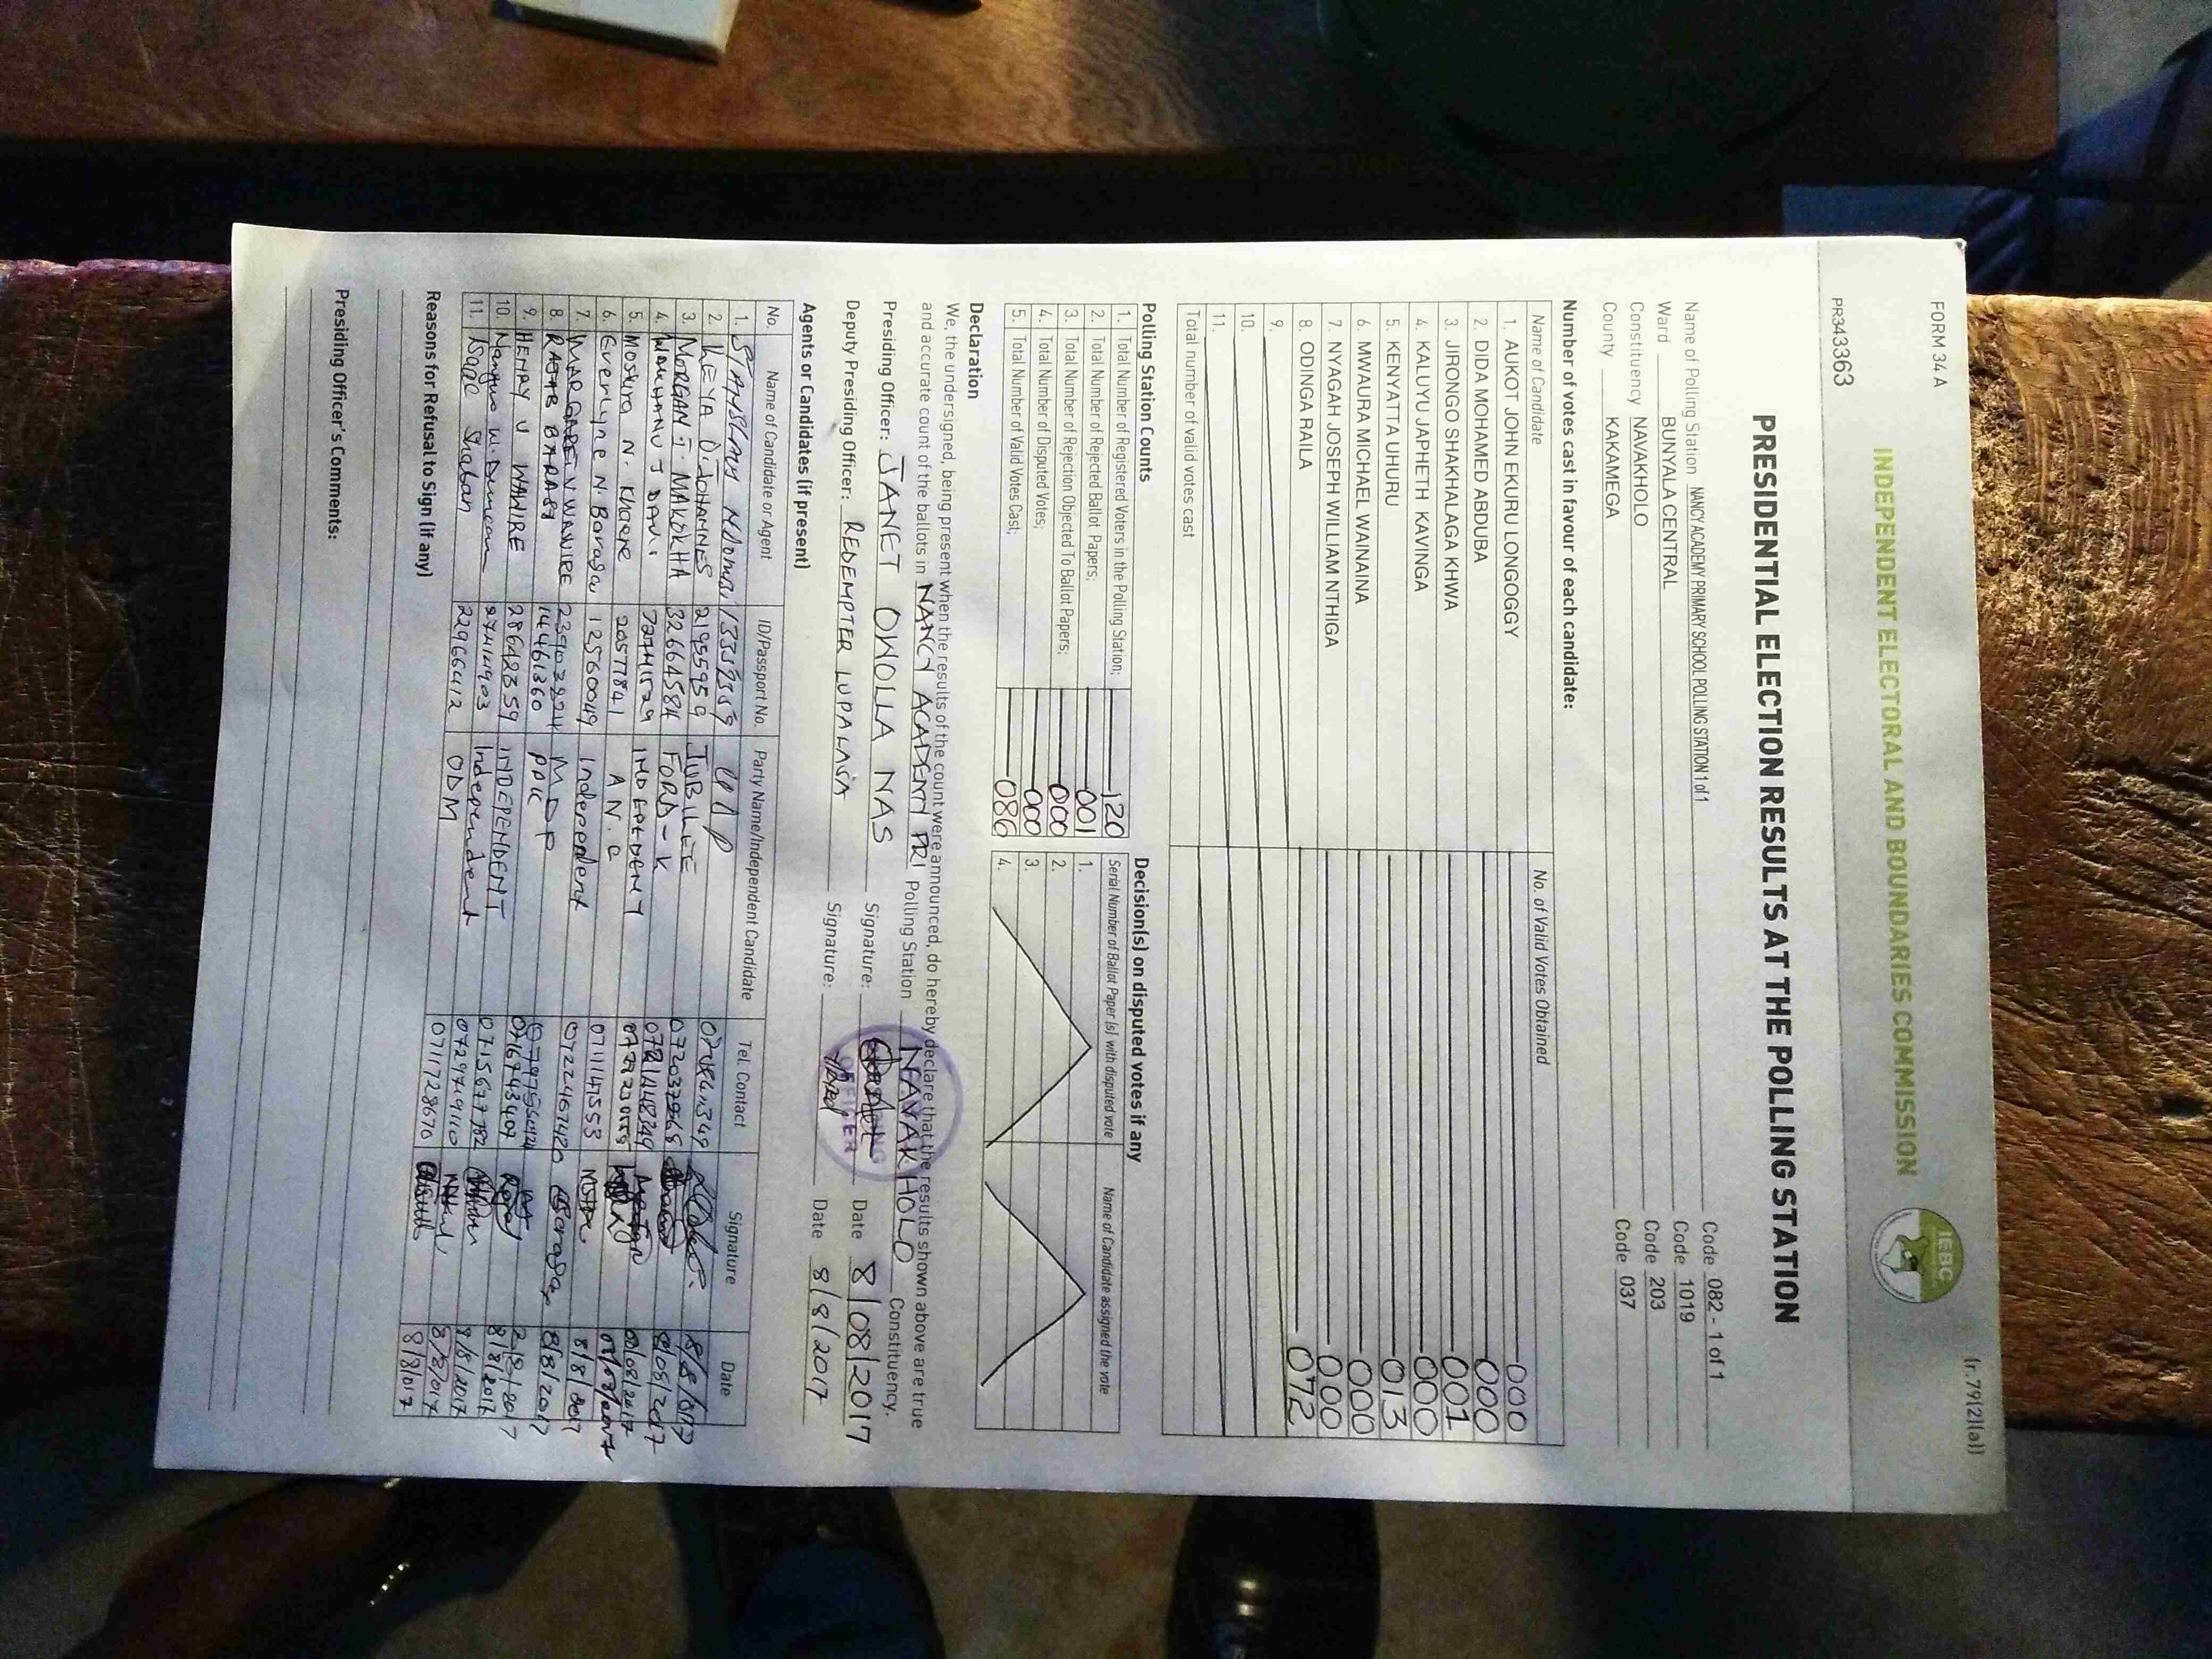 FORM 34 A
(r.79(2)(a))
INDEPENDENT ELECTORAL AND BOUNDARIES COMMISSION
IEBC
PR343363
PRESIDENTIAL ELECTION RESULTS AT THE POLLING STATION
Name of Polling Station NANCY ACADEMY PRIMARY SCHOOL POLLING STATION 1 of 1 Code 082 - 1 of 1
Ward BUNYALA CENTRAL Code 1019
Constituency NAVAKHOLO Code 203
County KAKAMEGA Code 037
Number of votes cast in favour of each candidate:
Name of Candidate No. of Valid Votes Obtained
1. AUKOT JOHN EKURU LONGOGGY 000
2. DIDA MOHAMED ABDUBA 000
3. JIRONGO SHAKHALAGA KHWA 001
4. KALUYU JAPHETH KAVINGA 000
5. KENYATTA UHURU 013
6. MWAURA MICHAEL WAINAINA 000
7. NYAGAH JOSEPH WILLIAM NTHIGA 000
8. ODINGA RAILA 072
9.
10.
11.
Total number of valid votes cast
Polling Station Counts
1. Total Number of Registered Voters in the Polling Station; 120
2. Total Number of Rejected Ballot Papers; 001
3. Total Number of Rejection Objected To Ballot Papers; 000
4. Total Number of Disputed Votes; 000
5. Total Number of Valid Votes Cast; 086
Decision(s) on disputed votes if any
Serial Number of Ballot Paper (s) with disputed vote Name of Candidate assigned the vote
1.
2.
3.
4.
Declaration
We, the undersigned, being present when the results of the count were announced, do hereby declare that the results shown above are true
and accurate count of the ballots in NANCY ACADEMY PRI Polling Station NAVAKHOLO Constituency.
Presiding Officer: JANET OKOLLA NAS Signature: Date 8/08/2017
Deputy Presiding Officer: REDEMPTER LUPALASIA Signature: Date 8/8/2017
Agents or Candidates (if present)
No. Name of Candidate or Agent ID/Passport No. Party Name/Independent Candidate Tel. Contact Signature Date
1.
2. KEYA D. JOHANNES 21955959 JUBILEE
3. MORGAN J. MAKOKHA 32664584 FORD-K
4. INDEPENDENT
5. N. Khaere 20577841 A N C
6. Everlyne N. Barasa 12560049 Independent 0711141553 8/8/2017
7. MARGARET V WANJIRE M D P 0722467420 8/8/2017
8. RAJAB BARASA 14461360 PDK
9. HENRY U WAWIRE 28642359 INDEPENDENT 0716794340 8/8/2017
10. W. Duncan 27414903 Independent 0715677782 8/8/2017
11. Isaac Shaban 22966412 ODM 0717728670 8/8/017
Reasons for Refusal to Sign (if any)
Presiding Officer's Comments: